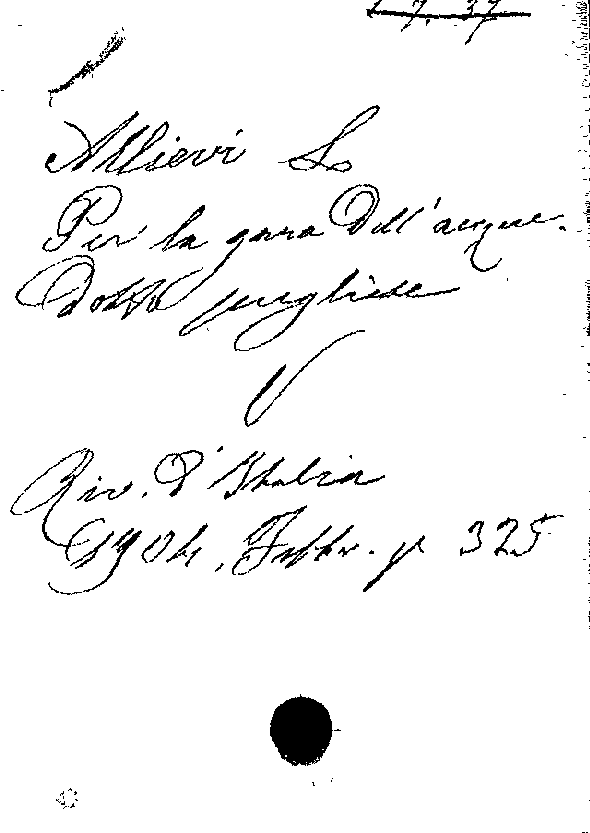 Allievi L.
Per la gara dell'acque-
dotto pugliese
Riv. d'Italia
1904, Febbr. p 325